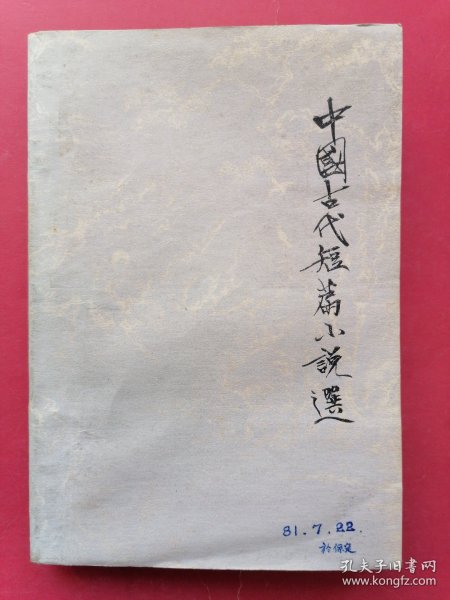 中國古代短篇小說選
81.7.22.
於保定
孔夫子旧书网
www.kongfz.com